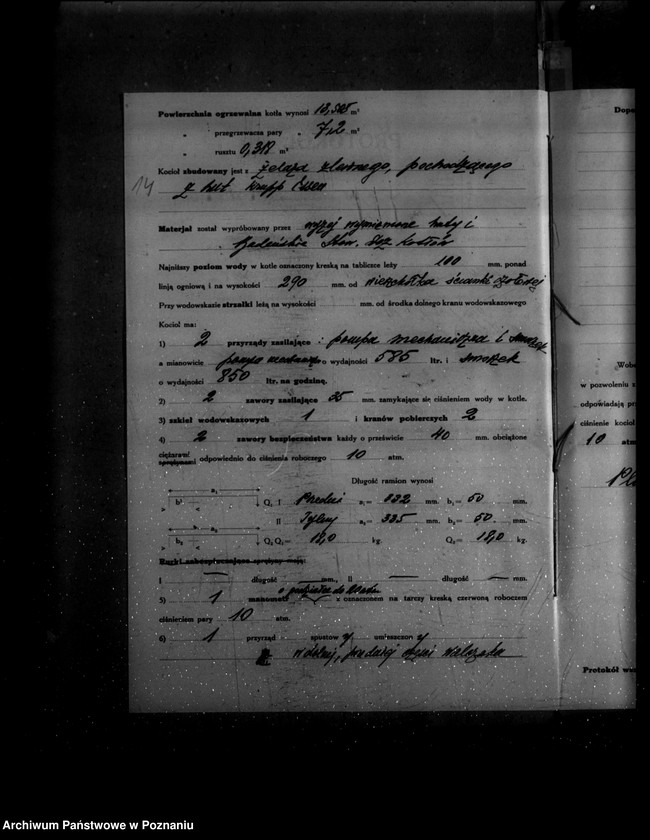 Powierzchnia ogrzewalna kotła wynosi 18,525 m²
" przegrzewacza pary " 7,2 m²
" rusztu 0,318 m²
Kocioł zbudowany jest z żelaza zlewnego, pochodzącego
14 z hut Krupp Essen
Materjał został wypróbowany przez wyżej wymienione huty i
Stow. Doz. Kotłów
Najniższy poziom wody w kotle oznaczony kreską na tabliczce leży 100 mm. ponad
linją ogniową i na wysokości 290 mm. od wierzchołka ścianki czołowej
Przy wodowskazie strzałki leżą na wysokości mm. od środka dolnego kranu wodowskazowego
Kocioł ma:
1) 2 przyrządy zasilające : pompa mechaniczna i smoczek
a mianowicie pompa mechaniczna o wydajności 585 ltr. i smoczek
o wydajności 850 ltr. na godzinę.
2) 2 zawory zasilające 25 mm. samykające się ciśnieniem wody w kotle.
3) szkieł wodowskazowych 1 i kranów pobierczych 2
4) 2 zawory bezpieczeństwa każdy o prześwicie 40 mm. obciążone
ciężarami sprężynami odpowiednio do ciśnienia roboczego 10 atm.
Długość ramion wynosi
a₁ b¹ Q₁ I Przedni a₁= 832 mm. b₁= 50 mm.
II Tylny a₂= 335 mm. b₂= 50 mm.
b₂ Q₂ Q₁= 18,0 kg. Q₂= 18,0 kg.
Rurki zabezpieczające sprężyny mają:
I — długość — mm., II — długość — mm.
o podziałce do 20 atm
5) 1 manometr z oznaczonem na tarczy kreską czerwoną roboczem
ciśnieniem pary 10 atm.
6) 1 przyrząd spustowy umieszczony
w dolnej, przedniej części walczaka
Dopo
Wobe
w pozwoleniu z
odpowiadają prz
ciśnienie kocioł
10 atm
Protokół wve
Archiwum Państwowe w Poznaniu